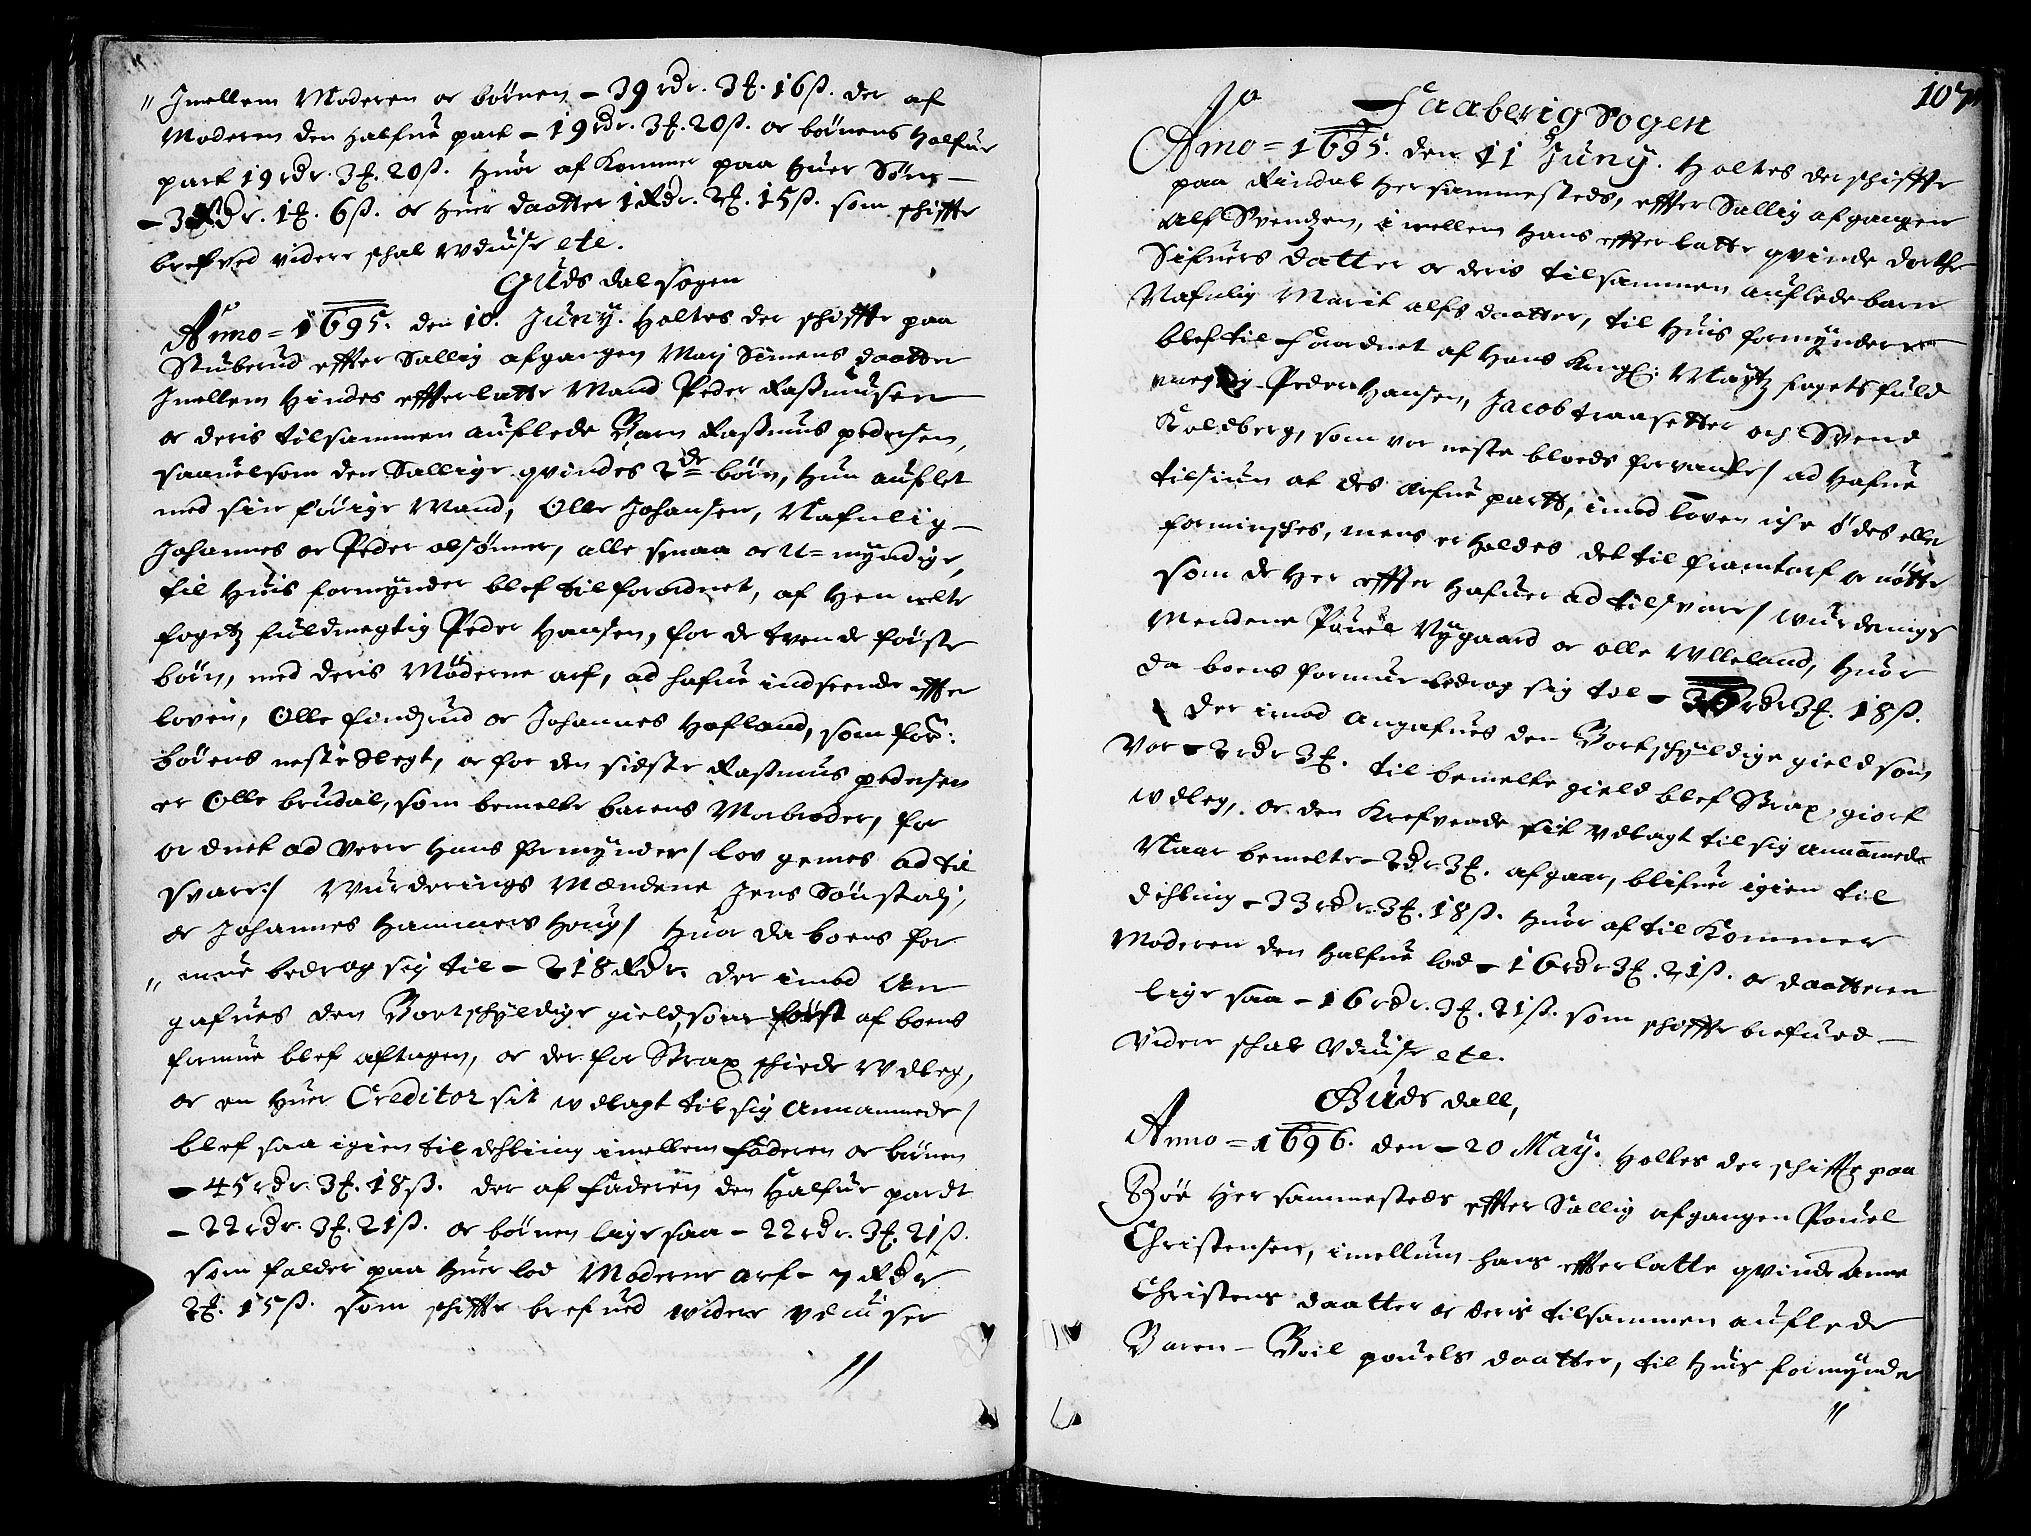 " Jmellem Moderen oc børnen – 39 rdr. 3 ₰. 16 ß. der af
Moderen den halfue part – 19 rdr. 3 ₰. 20 ß. oc børnens halfue
part 19 rdr. 3 ₰. 20 ß. huor af kommer paa huer Søns –
– 3 Rdr. 1 ₰. 6 ß. oc huer daatter 1 Rdr. 2 ₰. 15 ß. som schiffte
brefved videre schal vduise etc.
Guds dal sogen
Anno = 1695. den 10. Juny. holtes der schiffte paa
Stuberud effter Sallig afgangen Marj Simens daatter
Jmellem hindes effterlatte Mand Peder Raßmusen
oc deris tilsammen auflede Barn Raßmus pedersen,
saauelsom den Sallige quindes 2de børn, hun auflet
med sin førige Mand, Olle Johansen, Nafnlig –
Johannes oc Peder olsønner, alle smaa oc u= myndige,
til huis formynder blef tilforordnet, af
fogetz fuldmegtig Peder Hansen, for de tvende første
børn, med deris Møderne arf, ad hafue indseende effter
loven, Olle findzrud oc Johannes Hofland, som for:
børens neste Slegt, oc for den sidste Raßmus pedersen
er Olle brudal, som bemelte barens Morbroder, for
ordnet ad vere hans formynder / lov gemes ad til
svare / Wurderings Mændene Jens Sønstad,
oc Johannes Hammers houg / huor da boens for
" mue bedrog sig til – 218 Rdr. der imod An
gafues den Bortschyldige gield, som først af boens
formue blef aftagen, oc der for Strax schiede Wdleg,
oc en huer Creditor sit wdlagt til sig Annammede /
blef saa igien til dehling imellem faderen oc børnen
– 45 rdr. 3 ₰. 18 ß. der af faderen den halfue pardt
– 22 rdr. 3 ₰. 21 ß. oc børnen lige saa – 22 rdr. 3 ₰. 21 ß.
som falder paa huer lod Møderne arf – 7 Rdr
2 ₰. 15 ß. som schiffte brefued widere vduiser
//
107
Faaberig Sogen
Anno = 1695. den 11 Juny. Holtes der schiffte
paa Rindal her sammesteds, effter Sallig afgangen
Alf Svendzen, imellem hans effterlatte quinde dorthe
Sifuers datter oc deris tilsammen auflede barn
Nafnlig Marit alfs daatter, til huis formyndere
blef til forordnet af hans Kongl: Maytz fogets fuld
megtig Peder Hansen, Jacob traasetter och Svend
Koldberg, som var neste bloeds forvante / ad hafue
tilsiun at des Arfue partt, imod loven iche ødes eller
forminsches, mens er holdes det til framtarf oc nøtte
som de her effter hafuer ad tilsvare / wurderings
Mendene Pouel Nygaard oc olle Ulleland, huor
da boens formue bedrog sig til – 36 rdr 3 ₰. 18 ß.
der imod angafues den Bortschyldige gield som
var – 2 rdr 3 ₰. til bemelte gield blef Strax giort
wdleg, oc den Krefvende sit vdlagt til sig annammede
Naar bemelte – 2 dr. 3 ₰. afgaar, blifuer igien til
dehling – 33 rdr. 3 ₰. 18 ß. huor af til kommer
Moderen den halfue lod – 16 rdr 3 ₰. 21 ß. oc daatteren
lige saa – 16 rdr. 3 ₰. 21 ß. som schiffte brefued –
videre schal vduise etc.
Guds dall,
Anno = 1696. den – 20 May. holtes der schiffte paa
Bøe her sammesteds effter Sallig afgangen Pouel
Christensen, imellum hans effterlatte quinde Anne
Christens daatter oc deris tilsammen auflede
Baren – Boil pouels daatter, til huis formynder
//